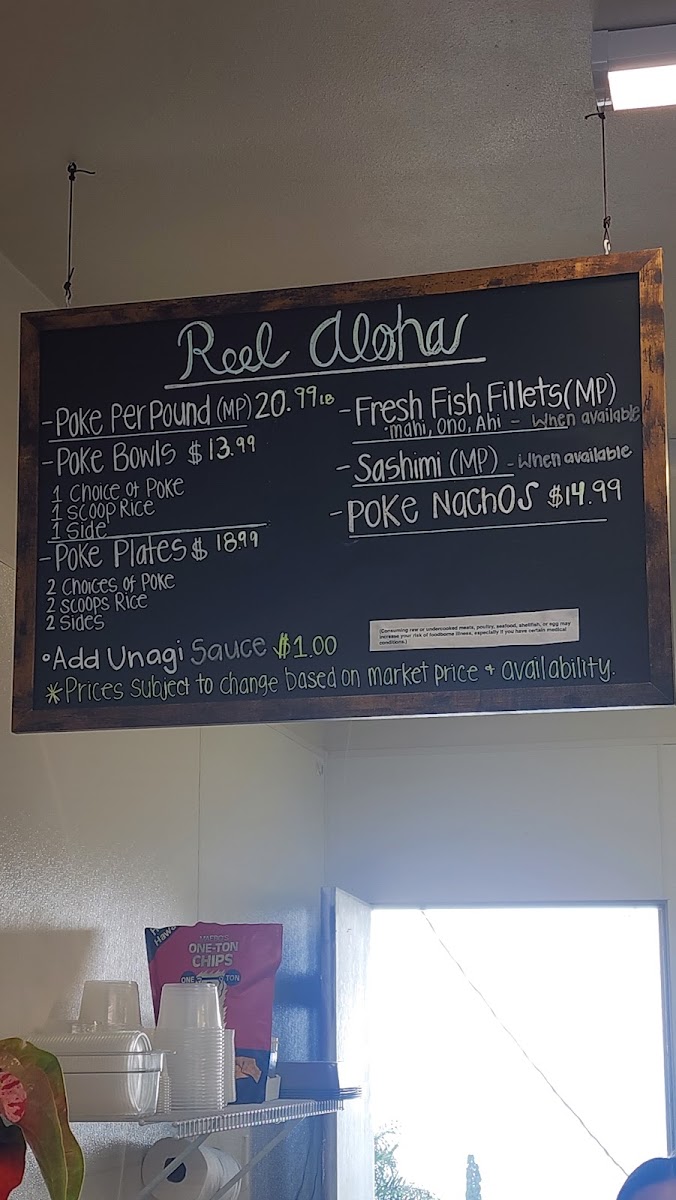 Reel Aloha
-Poke Per Pound (MP) 20.99 LB
-Poke Bowls $13.99
1 Choice of Poke
1 Scoop Rice
1 Side
-Poke Plates $18.99
2 Choices of Poke
2 Scoops Rice
2 Sides
-Fresh Fish Fillets (MP)
mahi, Ono, Ahi - When available
-Sashimi (MP) - When available
-Poke Nachos $14.99
(Consuming raw or undercooked meats, poultry, seafood, shellfish, or egg may
increase your risk of foodborne illness, especially if you have certain medical
conditions.)
°Add Unagi Sauce $1.00
*Prices subject to change based on market price + availability.
ONE-TON
CHIPS
ONE
TON